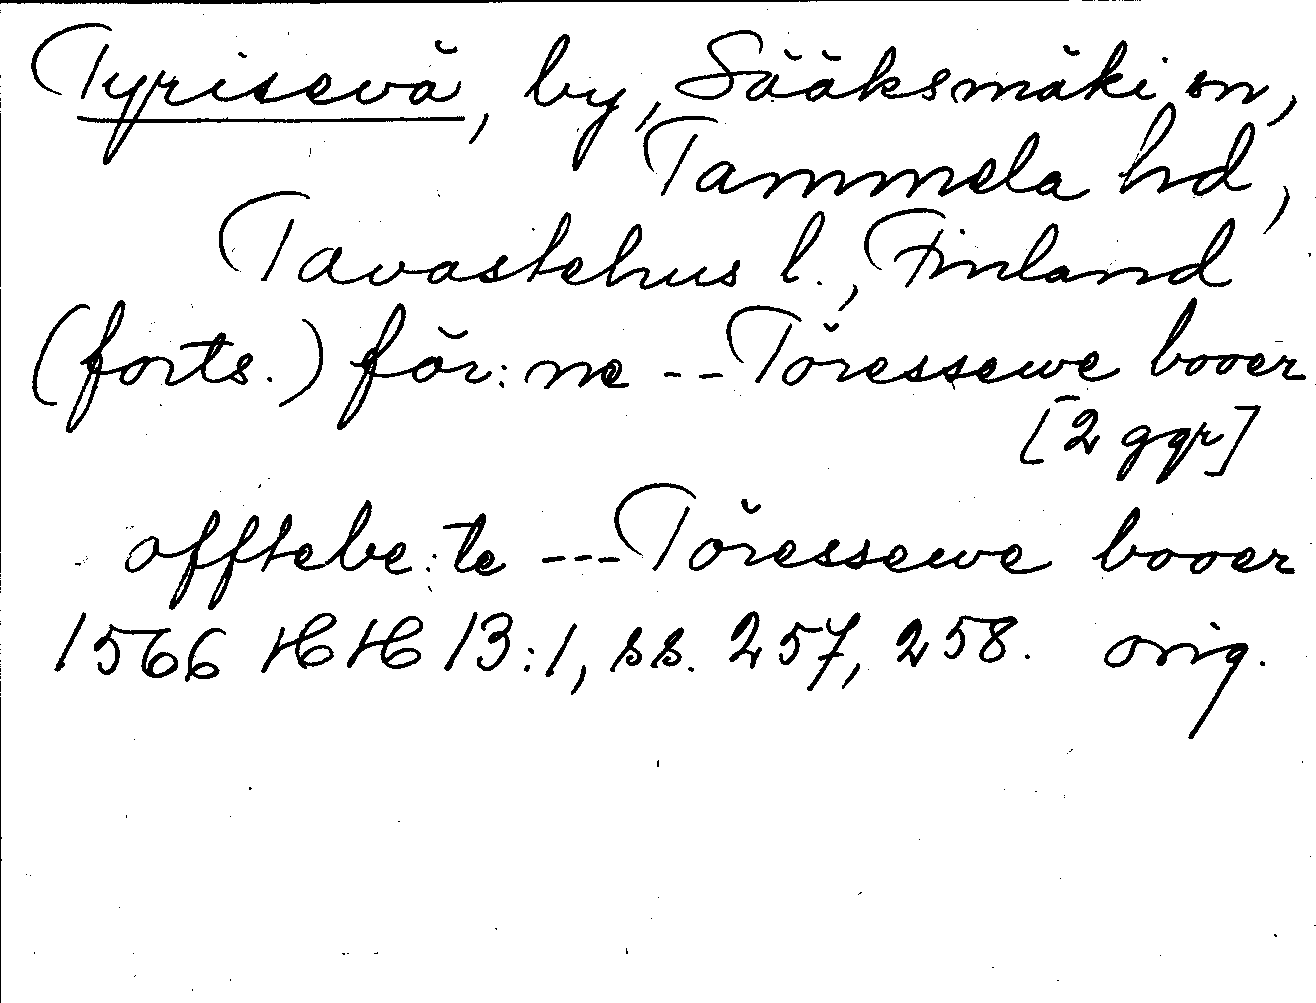 Tyrisevä, by, Sääksmäki sn,
Tammela hd,
Tavastehus l., Finland
(forts.) för:ne -- Töressewe booer
[2 ggr]
offtebe:te --- Töressewe booer
1566 HH 13:1, ss. 257, 258. orig.